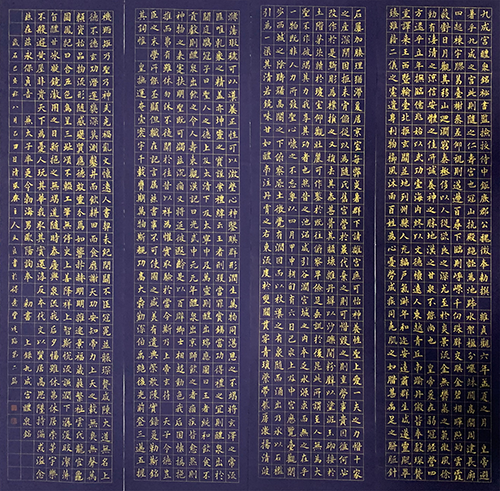 九成宮醴泉銘秘書監檢校侍中鉅鹿郡公魏徵奉勅撰 維貞觀六年孟夏之月 皇帝避
暑乎九成之宮此則隨之仁壽宮也冠山抗殿絕壑為池跨水架楹分巖竦闕高閣周建長廊
四起棟宇膠葛臺榭參差仰視則迢遰百尋下臨則崢嶸千仞珠璧交映金碧相暉照灼雲霞
蔽虧日月觀其移山迴澗窮泰極侈以人從欲良足深尤至於炎景流金無鬱蒸之氣微風徐
動有淒清之涼信安體之佳所誠養神之勝地漢之甘泉不能尚也 皇帝爰在弱冠經營四
方逮乎立年撫臨億兆始以武功壹海內終以文德懷遠人東越青丘南踰丹徼皆獻琛奉
贄重譯來王西暨輪臺北拒玄闕並地列州縣人充編戶氣淑年和邇安遠肅群生咸遂靈貺
畢臻雖藉二儀之功終資一人之慮遺身利物櫛風沐雨百姓為心憂勞成疾同堯肌之如腊甚禹足之胼胝針
石屢加腠理猶滯爰居京室每弊炎暑群下請建離宮庶可怡神養性聖上愛一夫之力惜十家
之產深閉固拒未肯俯從以為隨氏舊宮營於曩代棄之則可惜毀之則重勞事貴因循何必
改作於是斲彫為樸損之又損去其泰甚葺其頹壞雜丹墀以沙礫間粉壁以塗泥玉砌接於
土階茅茨續於瓊室仰觀壯麗可作鑒於既往俯察卑儉足垂訓於後昆此所謂至人無為大
聖不作彼竭其力我享其功者也然昔之池沼咸引谷澗宮城之內本乏水源求而無之在乎一
物既非人力所致聖心懷之不忘粵以四月甲申朔旬有六日己亥上及中宮歷覽臺觀閑
步西城之陰躊躇高閣之下俯察厥土微覺有潤因而以杖導之有泉隨而涌出乃承以石檻
引為一渠其清若鏡味甘如醴南注丹霄之右東流度於雙闕貫穿青瑣縈帶紫房激揚清波
滌蕩瑕穢可以導養正性可以澂瑩心神鑒映群形潤生萬物同湛恩之不竭將玄澤之常流
匪唯乾象之精盖亦坤靈之寶謹案禮緯云王者刑殺當罪賞錫當功得禮之宜則醴泉出於
闕庭鶡冠子曰聖人之德上及太清下及太寧中及萬靈則醴泉出瑞應圖曰王者純和飲食不
貢獻則醴泉出飲之令人壽東觀漢記曰光武中元元年醴泉出京師飲之者痼疾皆愈然則
神物之來寔扶明聖既可蠲茲沉痼又將延彼遐齡是以百辟卿士相趨動色我后固懷撝挹
推而弗有雖休勿休不徒聞於往昔以祥為懼實取驗於當今斯乃上帝玄符 天子令德豈
臣之末學所能丕顯但職在記言屬茲書事不可使國之盛美有遺典策敢陳實錄爰勒斯銘
其詞曰 惟皇撫運奄壹寰宇千載膺期萬物斯覩功高大舜勤深伯禹絕後光前登三邁五握
機蹈矩乃聖乃神武克禍亂文懷遠人書契未紀開闢不臣冠冕並襲琛贄咸陳大道無名上
德不德玄功潛運幾深莫測鑿井而飲耕田而食靡謝天功安知帝力上天之載無臭無聲萬
類資始品物流形隨感變質應德效靈介焉如響赫赫明明雜遝景福葳蕤繁祉雲氏龍官龜
圖鳳紀日含五色烏呈三趾頌不輟工筆無停史上善降祥上智斯悅流謙潤下潺湲皎潔萍
旨醴甘冰凝鏡澈用之日新挹之無竭道隨時泰慶與泉流我后夕惕雖休弗休居崇茅宇樂
不般遊黃屋非貴天下為憂人玩其華我取其實還淳反本代文以質居高思墜持滿戒溢念
茲在茲永保貞吉 兼太子率更令勃海男臣歐陽詢奉 勅書 九成宮醴泉銘